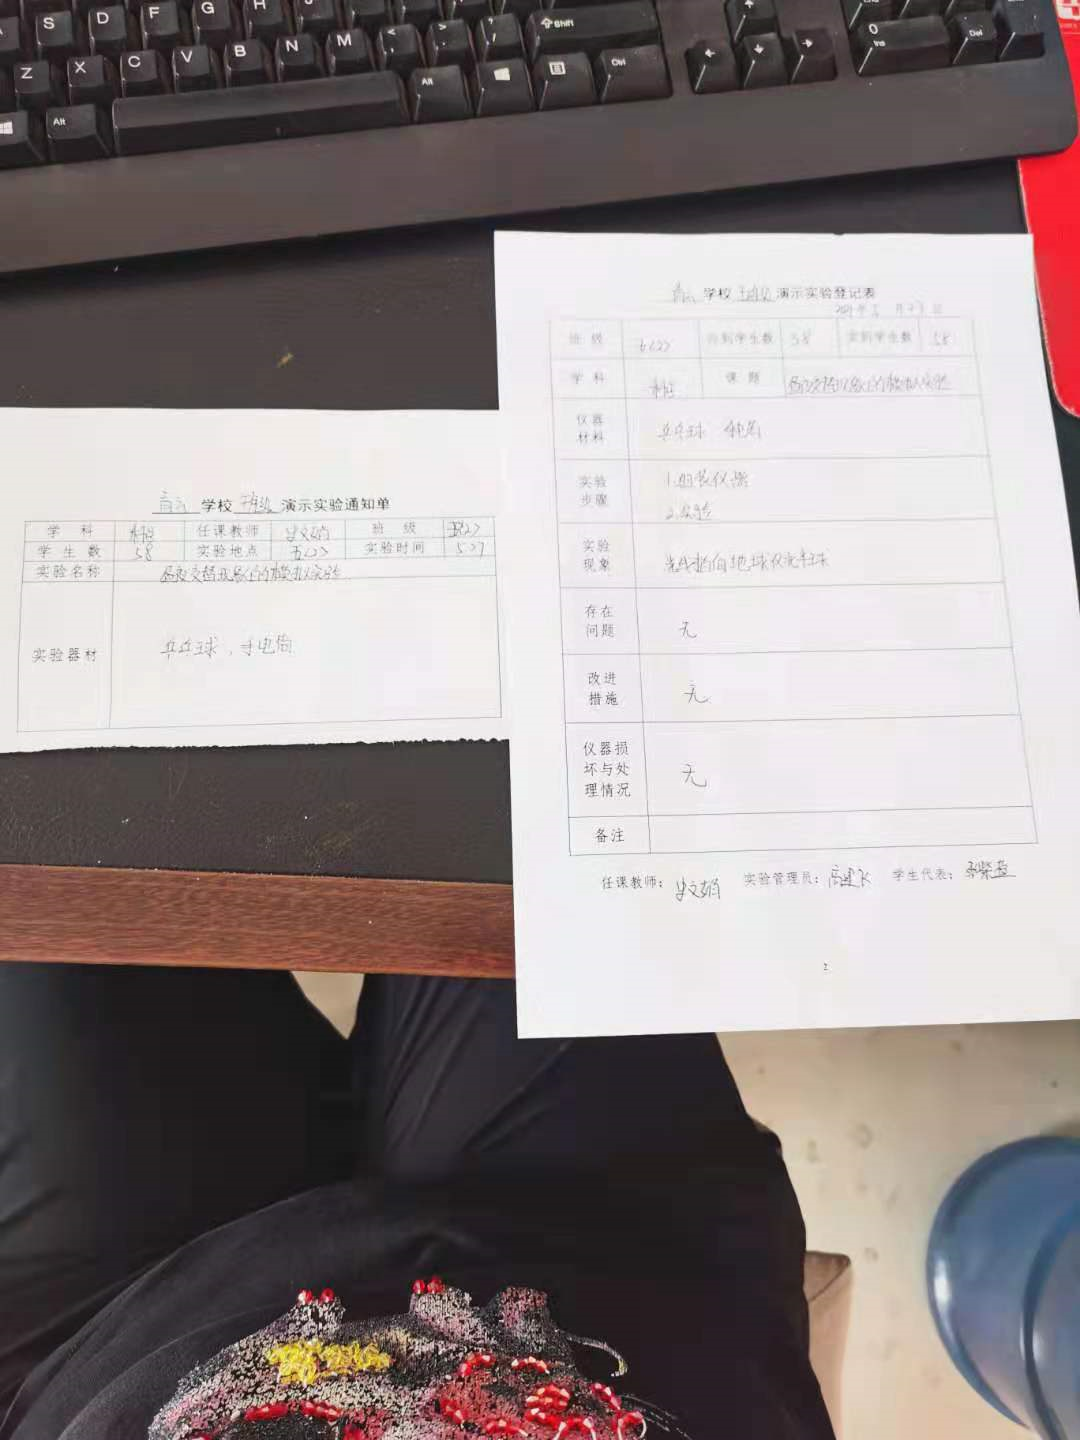 S D F G H
Z X C V B N M < , > . ? / ⇧Shift
Alt Alt Ctrl
0 Ins . Del
学校 演示实验通知单
学科 任课教师 班级
学生数 58 实验地点 五<2> 实验时间 5.27
实验名称 昼夜交替现象的模拟实验
实验器材 乒乓球，手电筒
学校 演示实验登记表
年5月27日
班级 五<2> 应到学生数 58 实到学生数 58
学科 科学 课题 昼夜交替现象的模拟实验
仪器材料 乒乓球
实验步骤 1.组装仪器
2.实验
实验现象
存在问题 无
改进措施 无
仪器损坏与处理情况 无
备注
任课教师： 实验管理员： 学生代表：
2